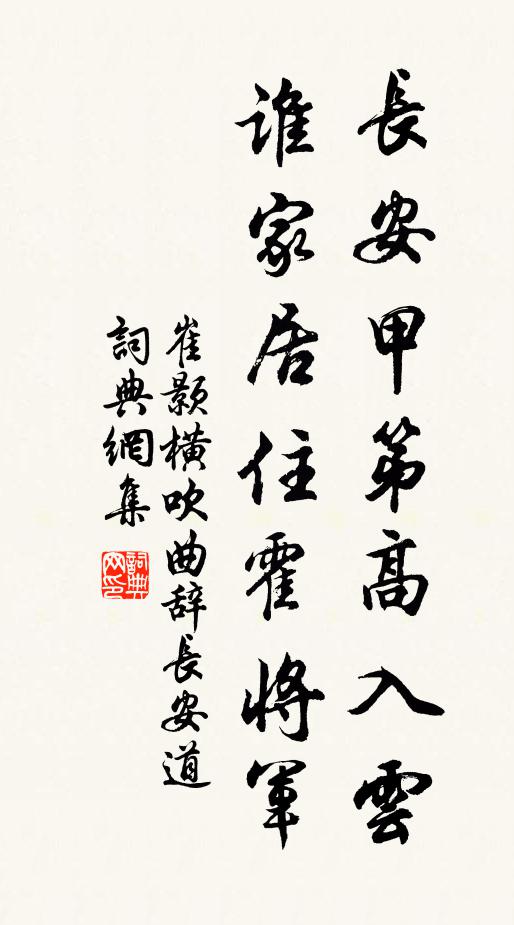 長安甲第高入雲
誰家居住霍將軍
崔顥橫吹曲辞長安道
詞典網集
詞典网印